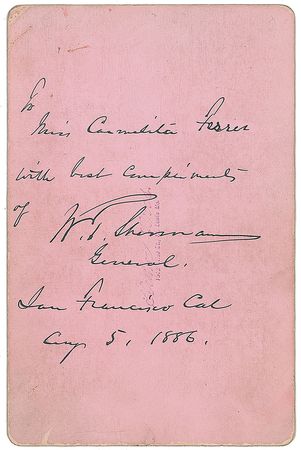 To
Miss Carmelita Ferrer
with best compliments
of W. T. Sherman
General.
San Francisco Cal
Aug 5, 1886.